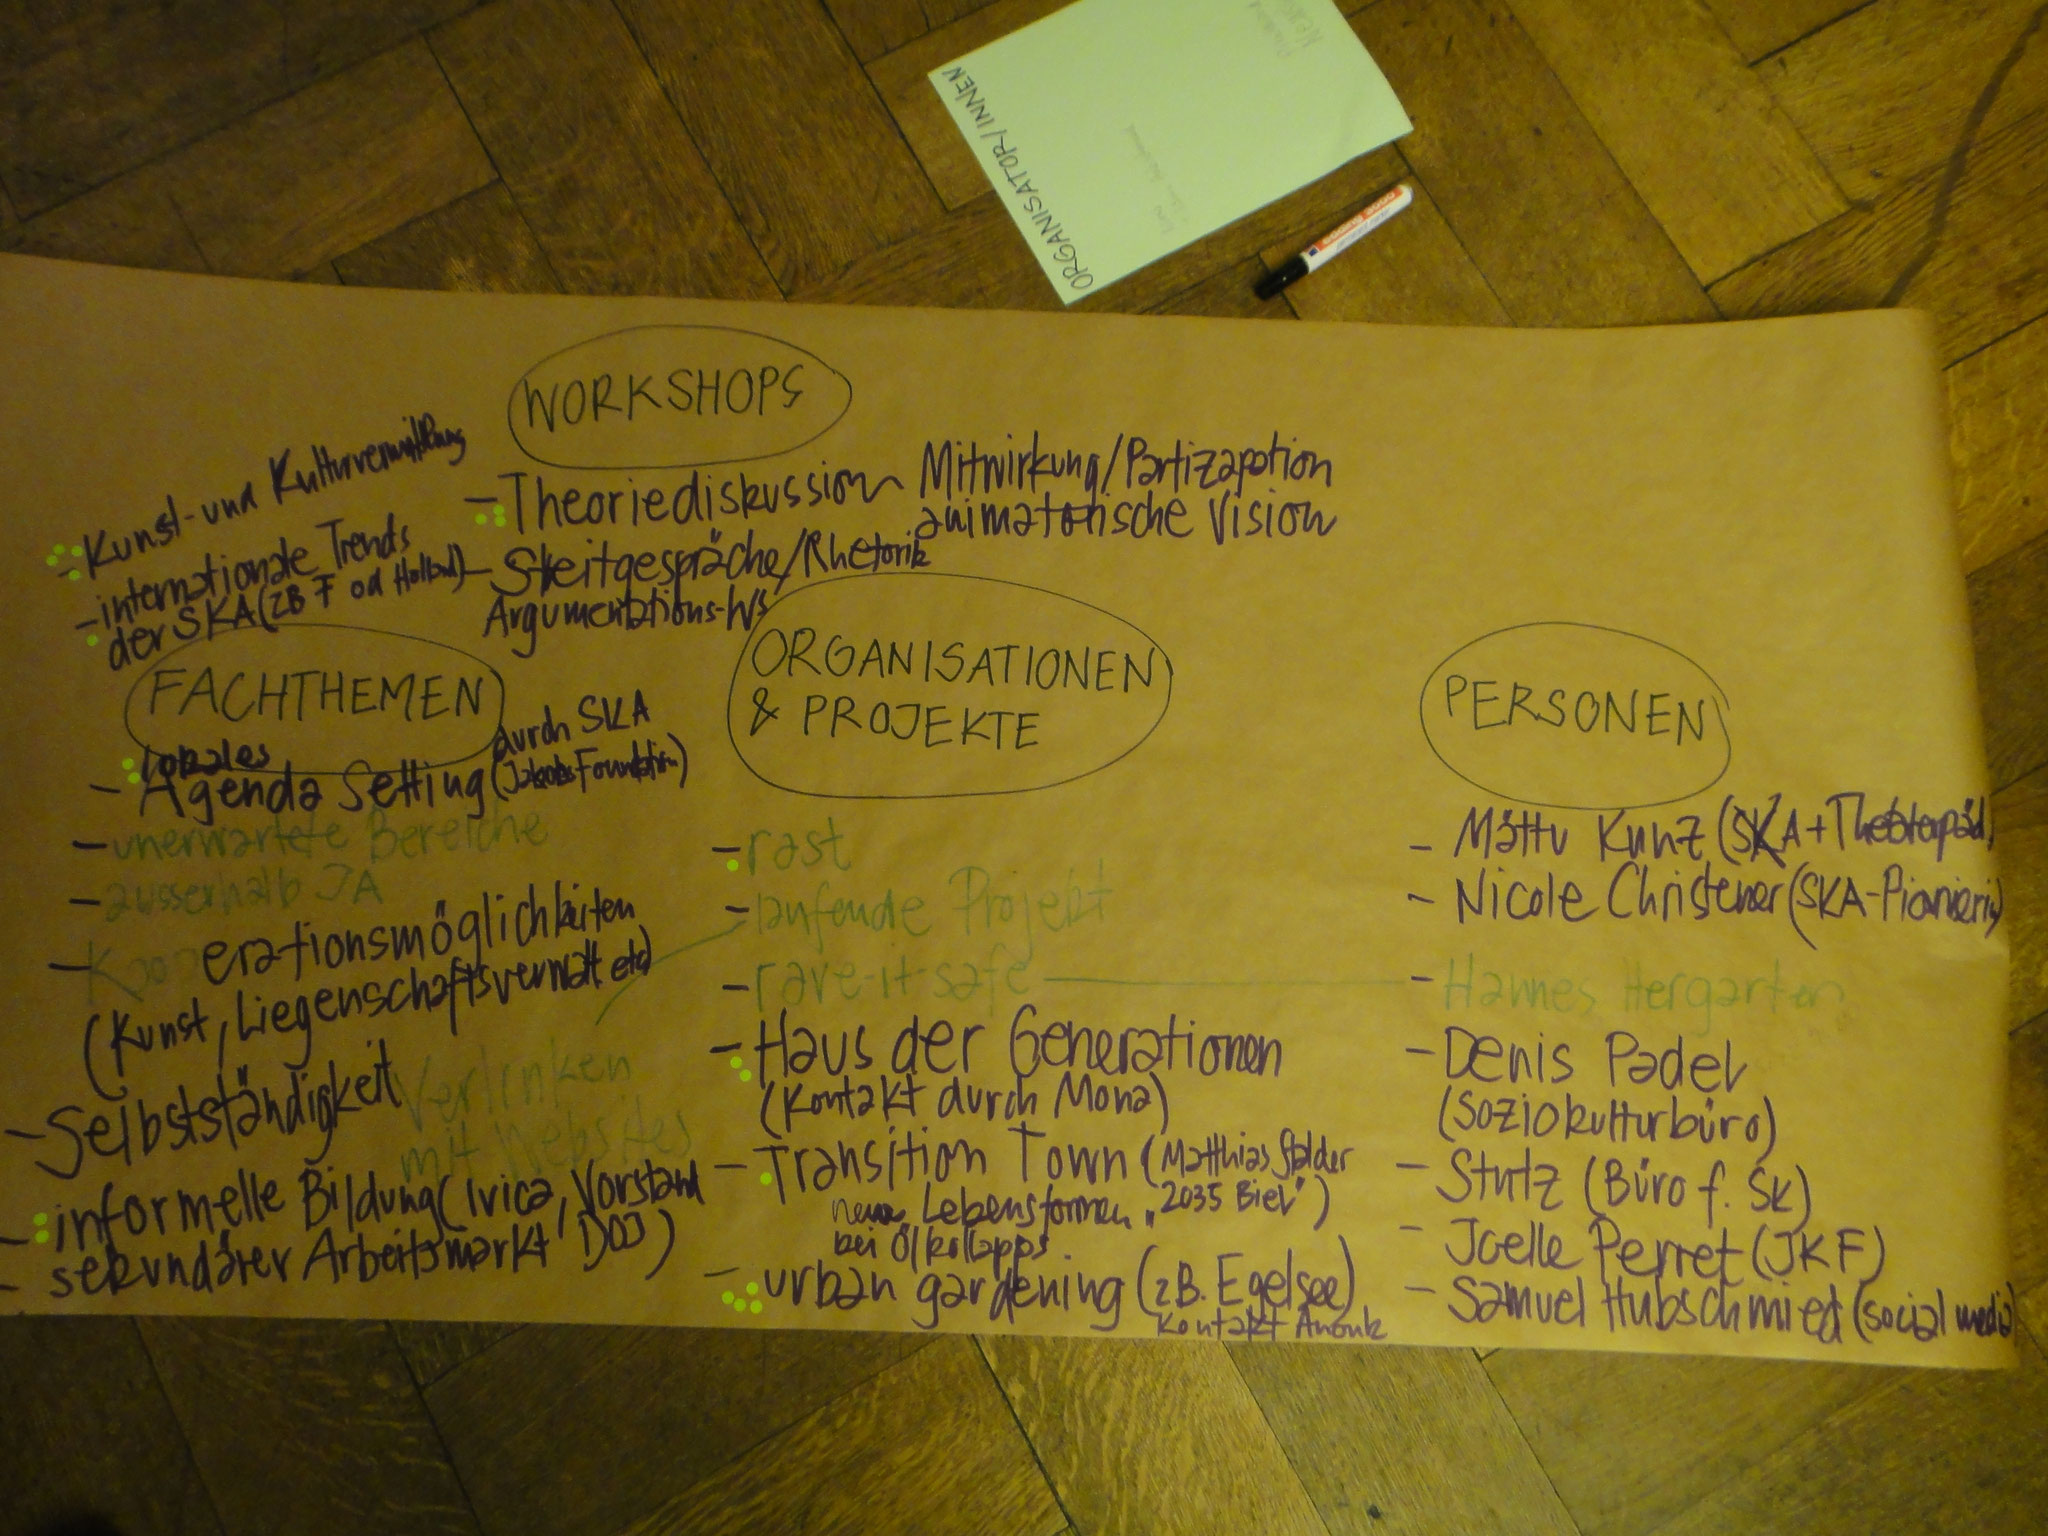 ORGANISATOR/INNEN
edding
WORKSHOPS
- Theoriediskussion Mitwirkung/Partizapation
animatorische Vision
- Streitgespräche/Rhetorik
Argumentations-WS
- Kunst- und Kulturvermittlung
- internationale Trends
der SKA (ZB F od Holland)
FACHTHEMEN
- lokales
Agenda Setting durch SKA
(Jakobs Foundation)
- unerwartete Bereiche
- ausserhalb JA
- Kooperationsmöglichkeiten
(Kunst, Liegenschaftsverwalt etc)
- Selbstständigkeit
Verlinken
mit Websites
- informelle Bildung (Ivica, Vorstand
DOJ)
- sekundärer Arbeitsmarkt
ORGANISATIONEN
& PROJEKTE
- rast
- laufende Projekt
- rave-it-safe
- Haus der Generationen
(Kontakt durch Mona)
- Transition Town (Matthias Stalder
neue Lebensformen "2035 Biel")
bei Ölkollapps.
- urban gardening (zB. Egelsee)
Kontakt Anouk
PERSONEN
- Mättu Kunz (SKA + Theaterpäd)
- Nicole Christener (SKA-Pionierin)
- Hannes Hergarten
- Denis Padel
(Soziokulturbüro)
- Stutz (Büro f. SK)
- Joelle Perret (JKF)
- Samuel Hubschmied (social media)